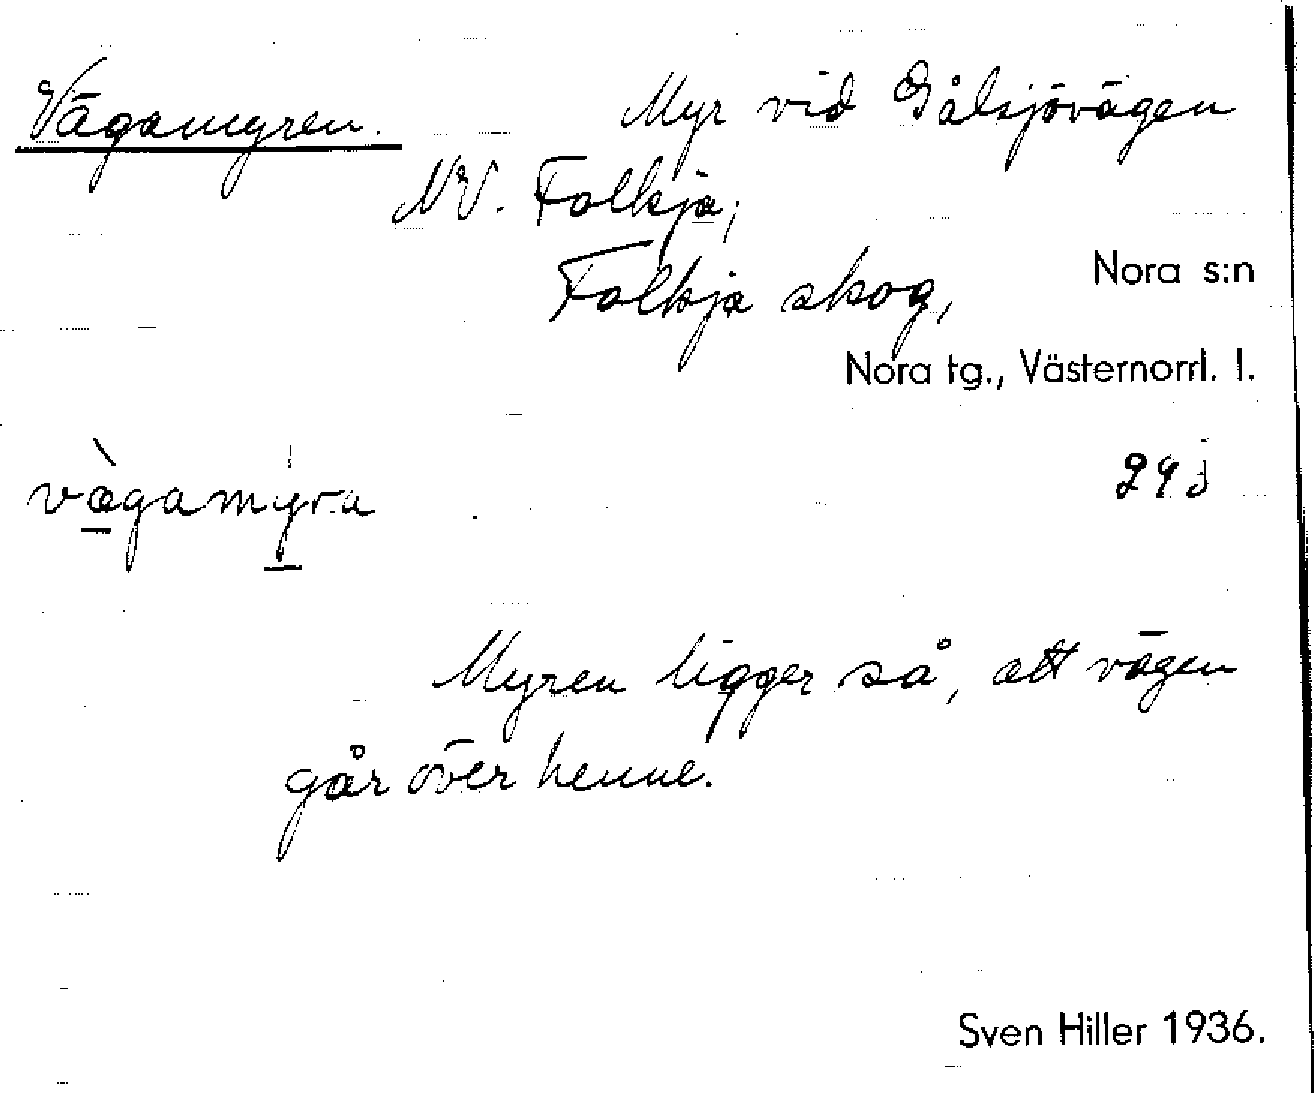 Vägamyren. Myr vid Gålsjövägen
NV. Folkja,
Folkja skog,
Nora s:n
Nora tg., Västernorrl. l.
vägamyra
Myren ligger så, att vägen
går över henne.
Sven Hiller 1936.